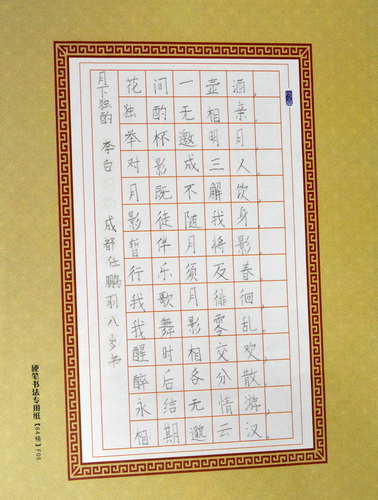 月下独酌 李白 成都任鹏羽八岁书
花间一壶酒,
独酌无相亲。
举杯邀明月,
对影成三人。
月既不解饮,
影徒随我身。
暂伴月将影,
行乐须及春。
我歌月徘徊,
我舞影零乱。
醒时相交欢,
醉后各分散。
永结无情游,
相期邈云汉。
硬笔书法专用纸【84格】F05